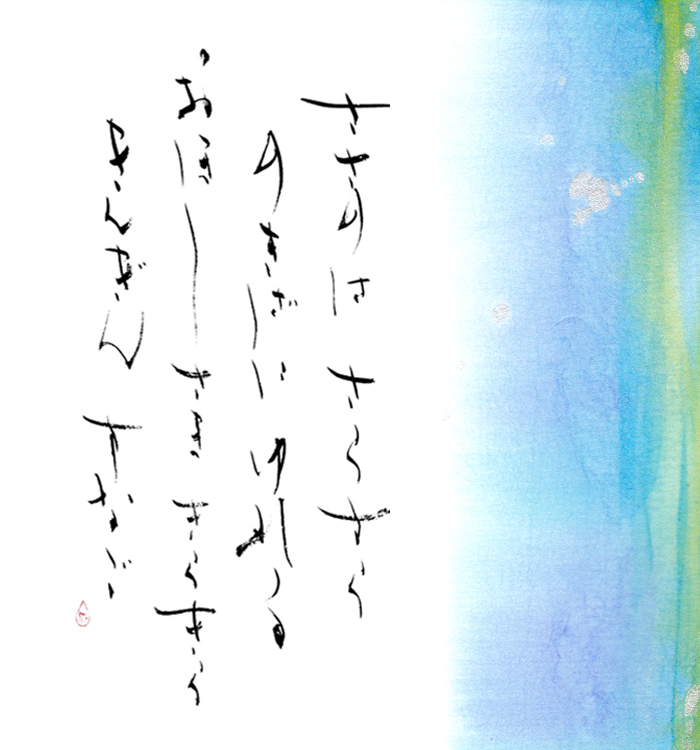 ささのは さらさら
のきばに ゆれる
おほしさま きらきら
きんぎん すなご